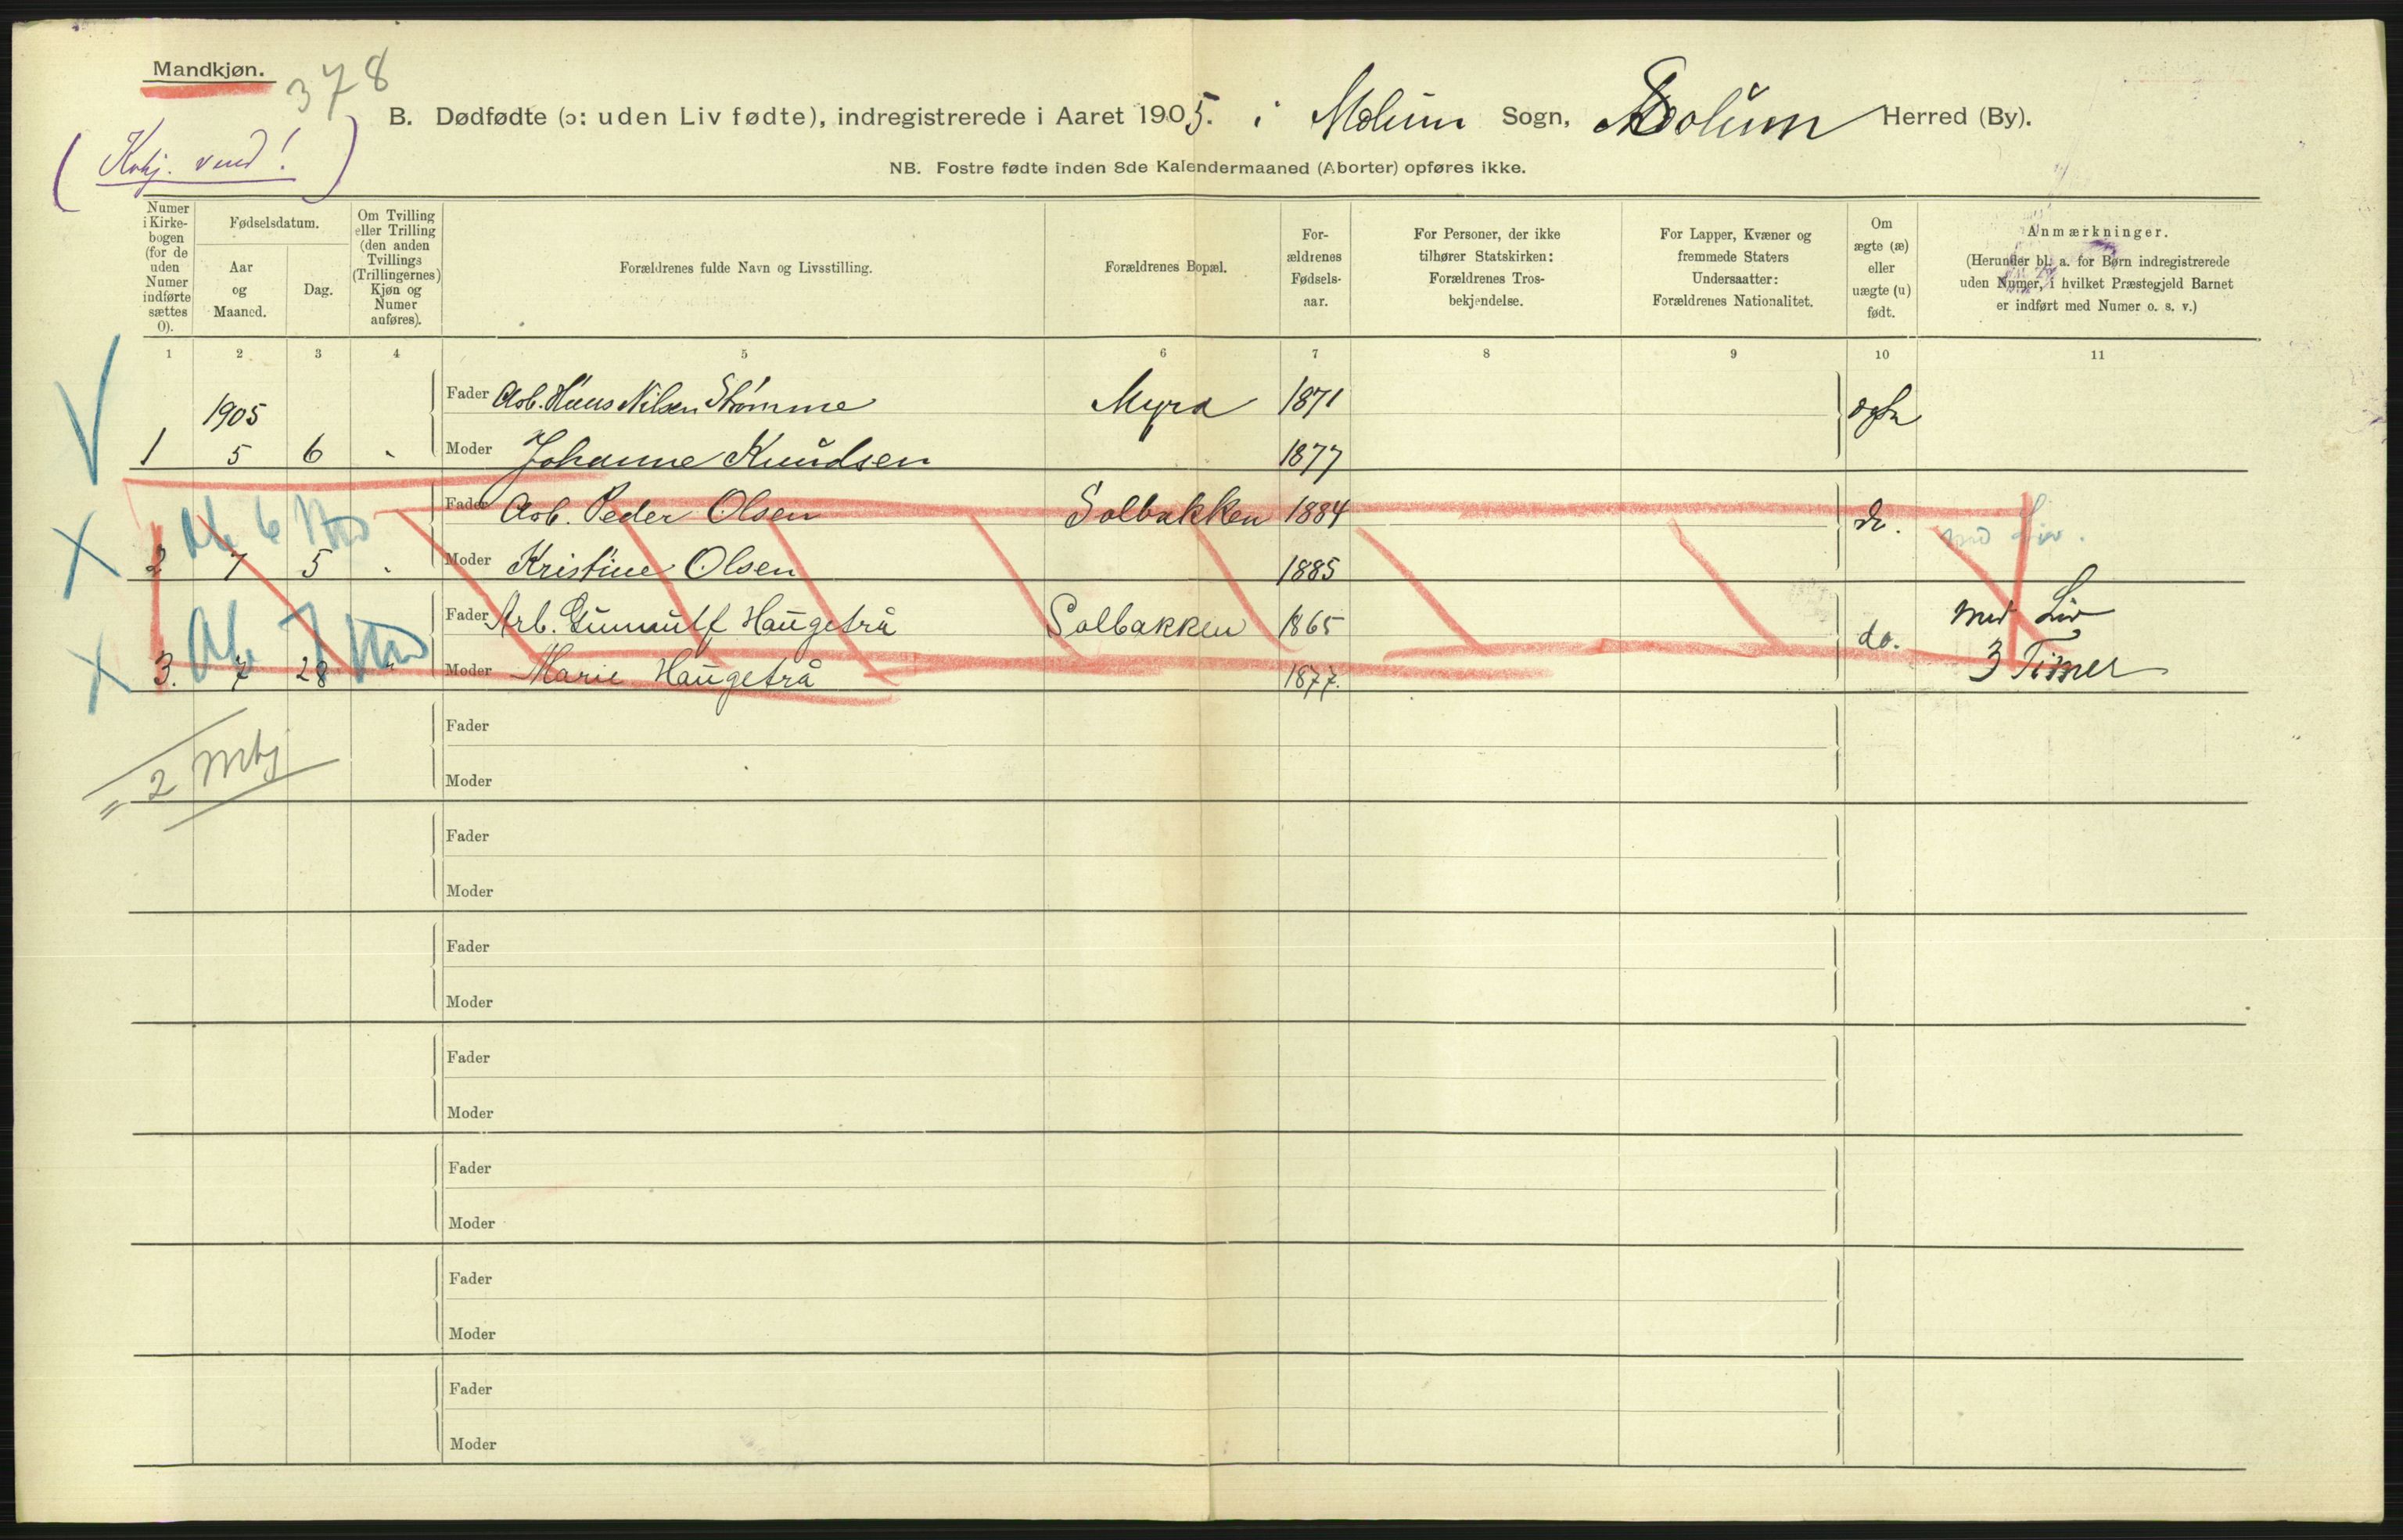 Mandkjøn.
378
B. Dødfødte (ɔ: uden Liv fødte), indregistrerede i Aaret 1905. i Melum Sogn, Solum Herred (By).
(Kvkj. vend!)
NB. Fostre fødte inden 8de Kalendermaaned (Aborter) opføres ikke.
Numer i Kirkebogen (for de uden Numer indførte sættes 0).
Fødselsdatum.
Aar og Maaned.
Dag.
Om Tvilling eller Trilling (den anden Tvillings (Trillingernes) Kjøn og Numer anføres).
Forældrenes fulde Navn og Livsstilling.
Forældrenes Bopæl.
For-ældrenes Fødsels-aar.
For Personer, der ikke tilhører Statskirken: Forældrenes Tros-bekjendelse.
For Lapper, Kvæner og fremmede Staters Undersaatter: Forældrenes Nationalitet.
Om ægte (æ) eller uægte (u) født.
Anmærkninger.
(Herunder bl. a. for Børn indregistrerede uden Numer, i hvilket Præstegjeld Barnet er indført med Numer o. s. v.)
1 2 3 4 5 6 7 8 9 10 11
1905
Fader Arb. Hans Nilsen Strømme Myra 1871 ægte
1 5 6 " Moder Johanne Knudsen 1877
Fader Arb. Peder Olsen Solbakken 1884 do. med Liv.
2 7 5 " Moder Kristine Olsen 1885
Fader Arb. Gunnulf Haugetrå Solbakken 1865 do. med Liv
3. 7 28 " Moder Marie Haugetrå 1877. 3 Timer
Fader
= 2 Mkj
Moder
Fader
Moder
Fader
Moder
Fader
Moder
Fader
Moder
Fader
Moder
Fader
Moder